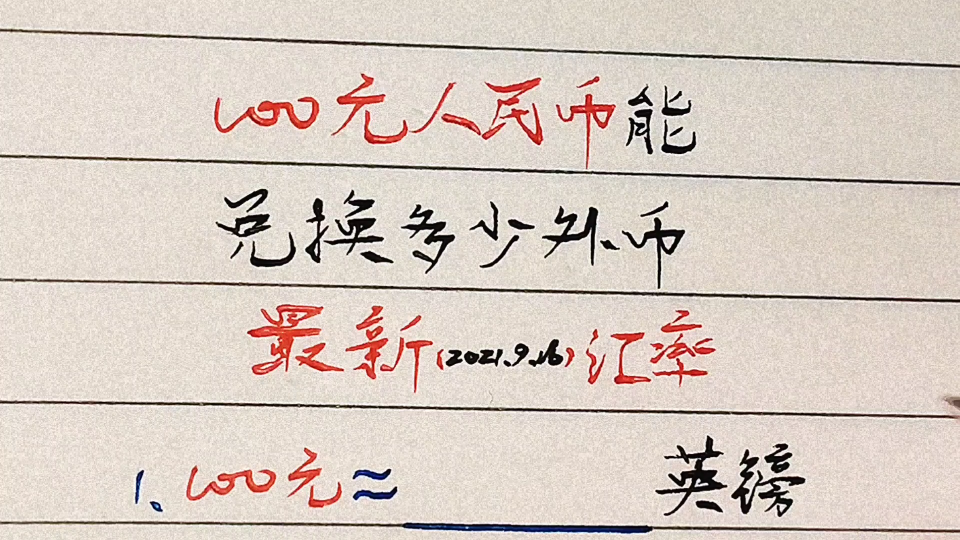 100元人民币能
兑换多少外币
最新(2021.9.16)汇率
1.100元≈ 英镑